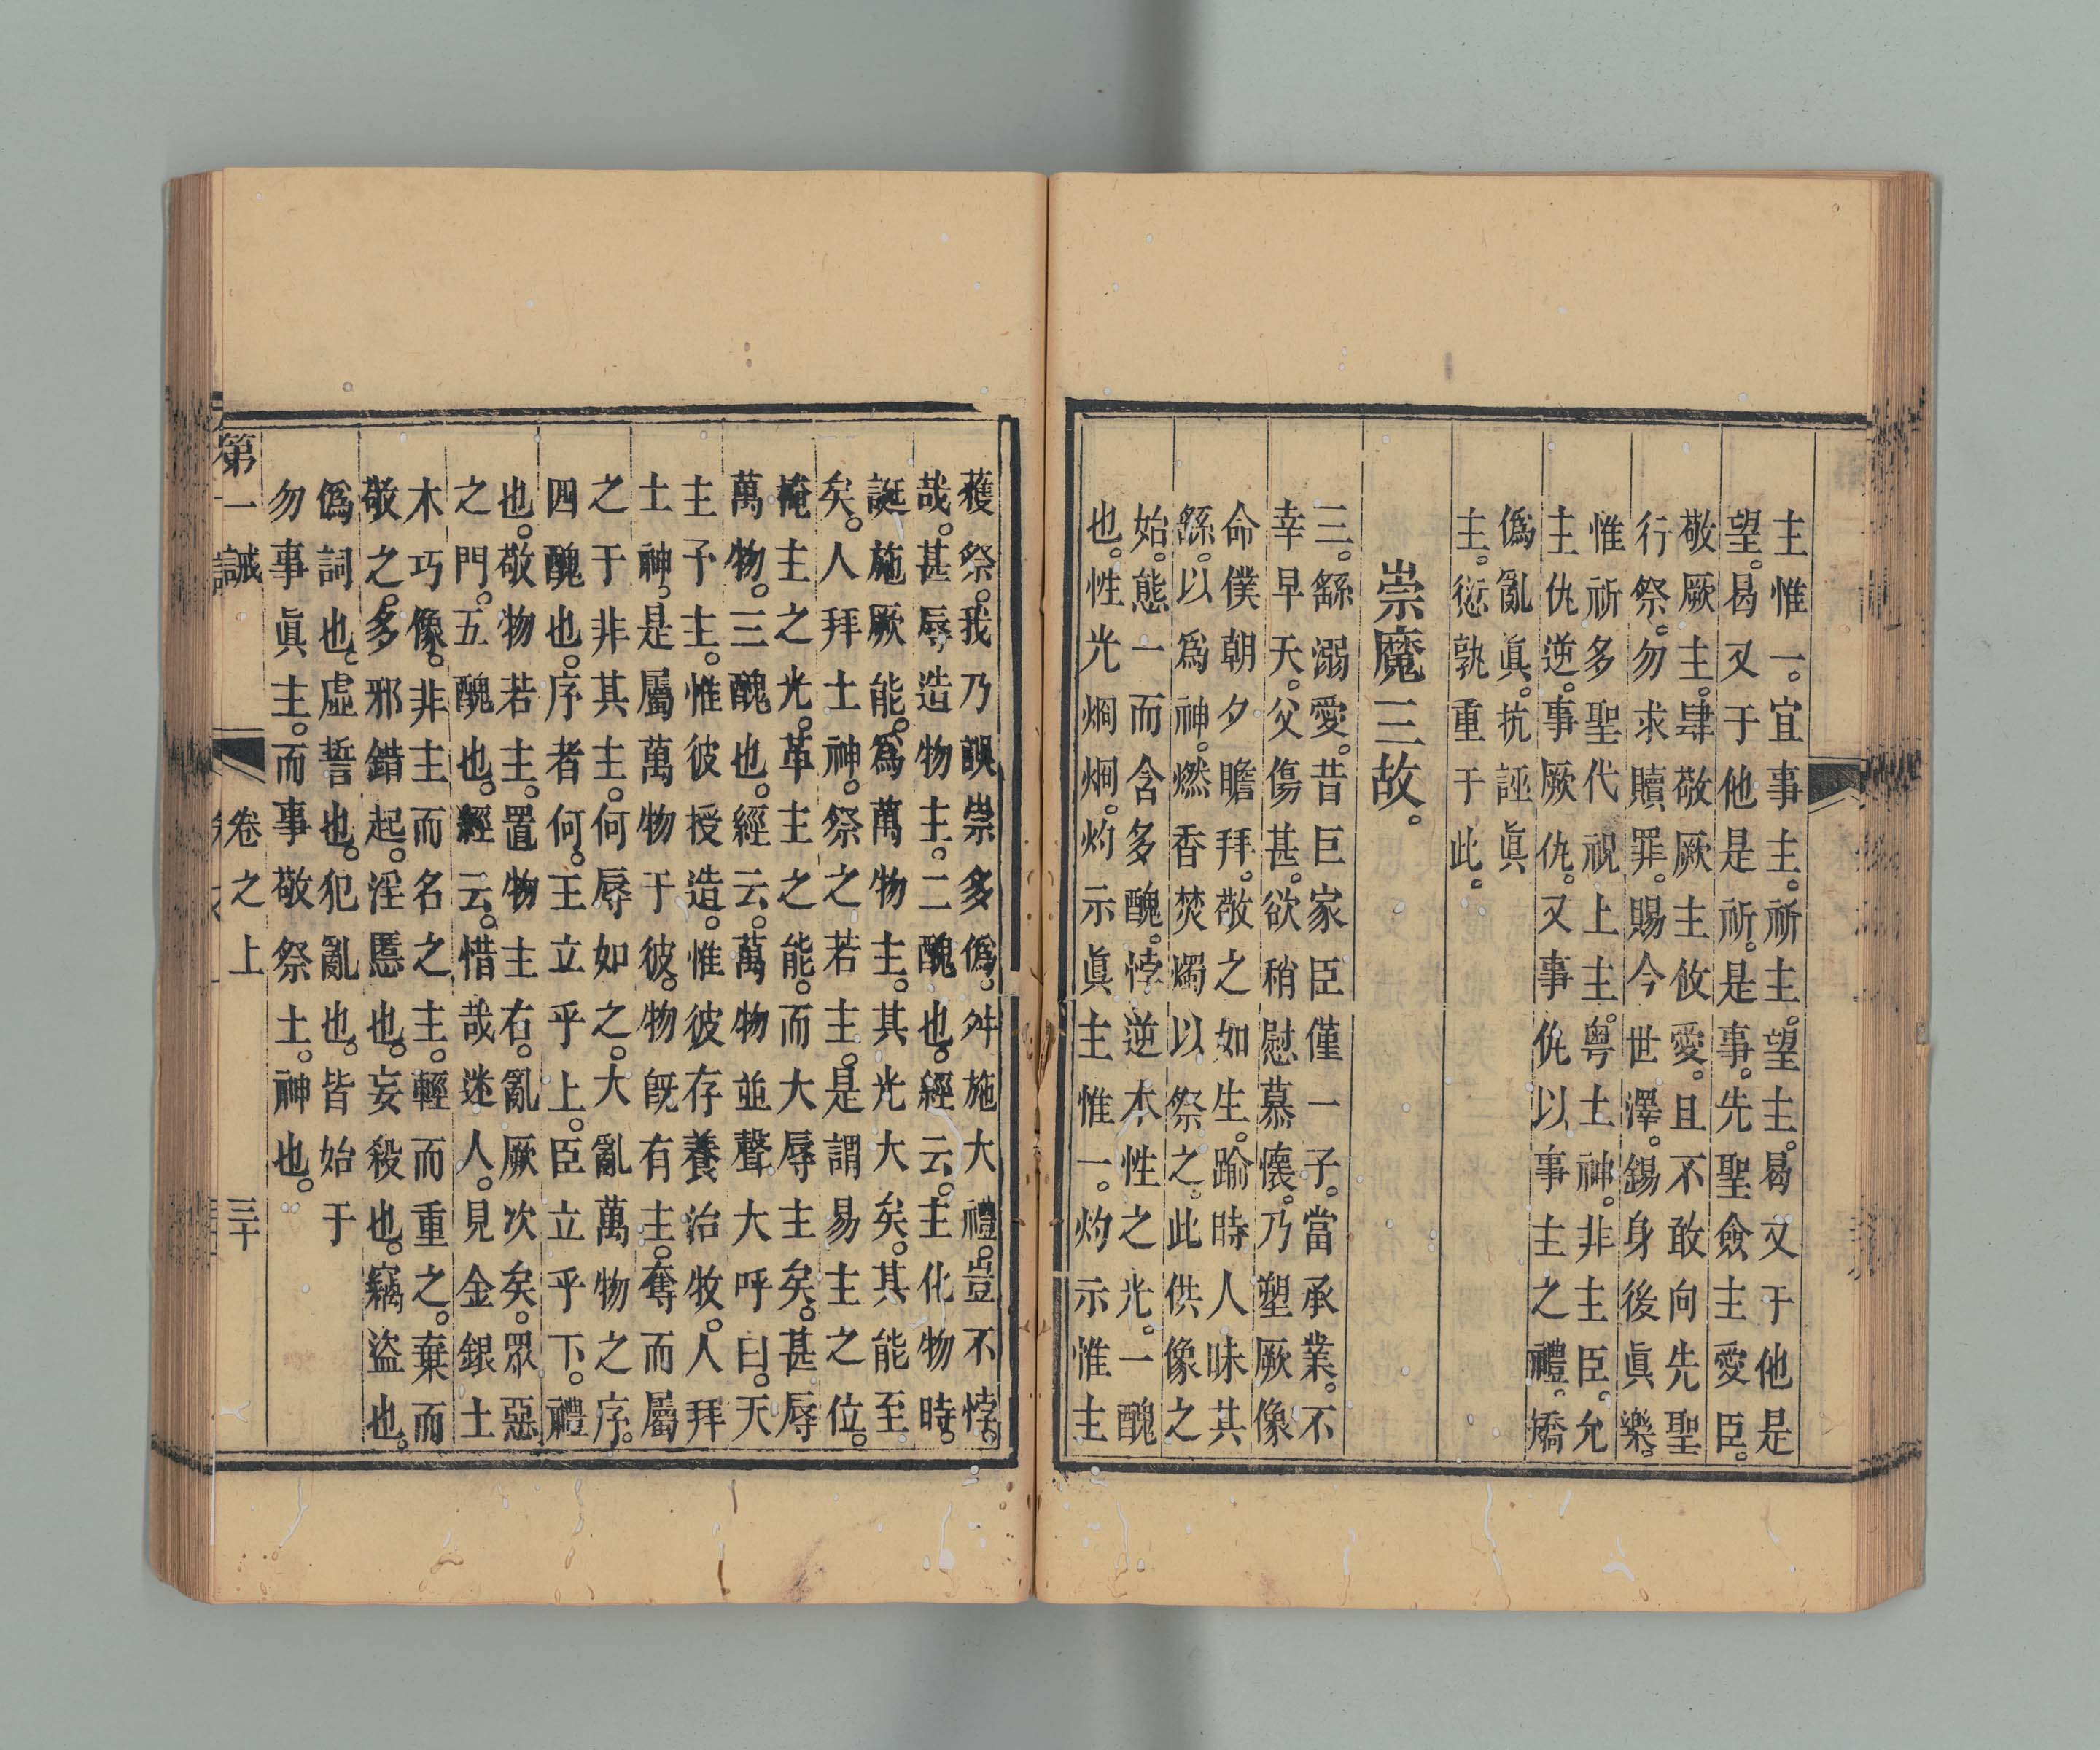 主惟一。宜事主。祈主。望主。曷又于他是
望。曷又于他是祈。是事。先聖僉主愛臣。
敬厥主。肆敬厥主攸愛。且不敢向先聖
行祭。勿求贖罪。賜今世澤。錫身後眞樂。
惟祈多聖代祝上主。粤土神。非主臣。允
主仇逆。事厥仇。又事仇以事主之禮。矯
僞亂眞。抗誣眞
主。愆孰重于此。
崇魔三故。
三。繇溺愛。昔巨家臣僅一子。當承業。不
幸早夭。父傷甚。欲稍慰慕懷。乃塑厥像
命僕朝夕瞻拜。敬之如生。踰時人昧其
繇。以爲神。燃香焚燭以祭之。此供像之
始。態一而含多醜。悖逆本性之光。一醜
也。性光烱烱。灼示眞主惟一。灼示惟主
穫祭。我乃誤崇多僞。舛施大禮。豈不悖
哉。甚辱造物主。二醜也。經云。主化物時。
誕施厥能。爲萬物主。其光大矣。其能至
矣。人拜土神。祭之若主。是謂易主之位。
掩主之光。革主之能。而大辱主矣。甚辱
萬物。三醜也。經云。萬物並聲大呼曰。天
主予主。惟彼授造。惟彼存養治牧。人拜
土神。是屬萬物于彼。物旣有主。奪而屬
之于非其主。何辱如之。大亂萬物之序。
四醜也。序者何。王立乎上。臣立乎下。禮
也。敬物若主。置物主右。亂厥次矣。眾惡
之門。五醜也。經云。惜哉迷人。見金銀土
木巧像。非主而名之主。輕而重之。棄而
敬之。多邪錯起。淫慝也。妄殺也。竊盜也。
僞詞也。虛誓也。犯亂也。皆始于
勿事眞主。而事敬祭土。神也。
第一誡 卷之上 三十